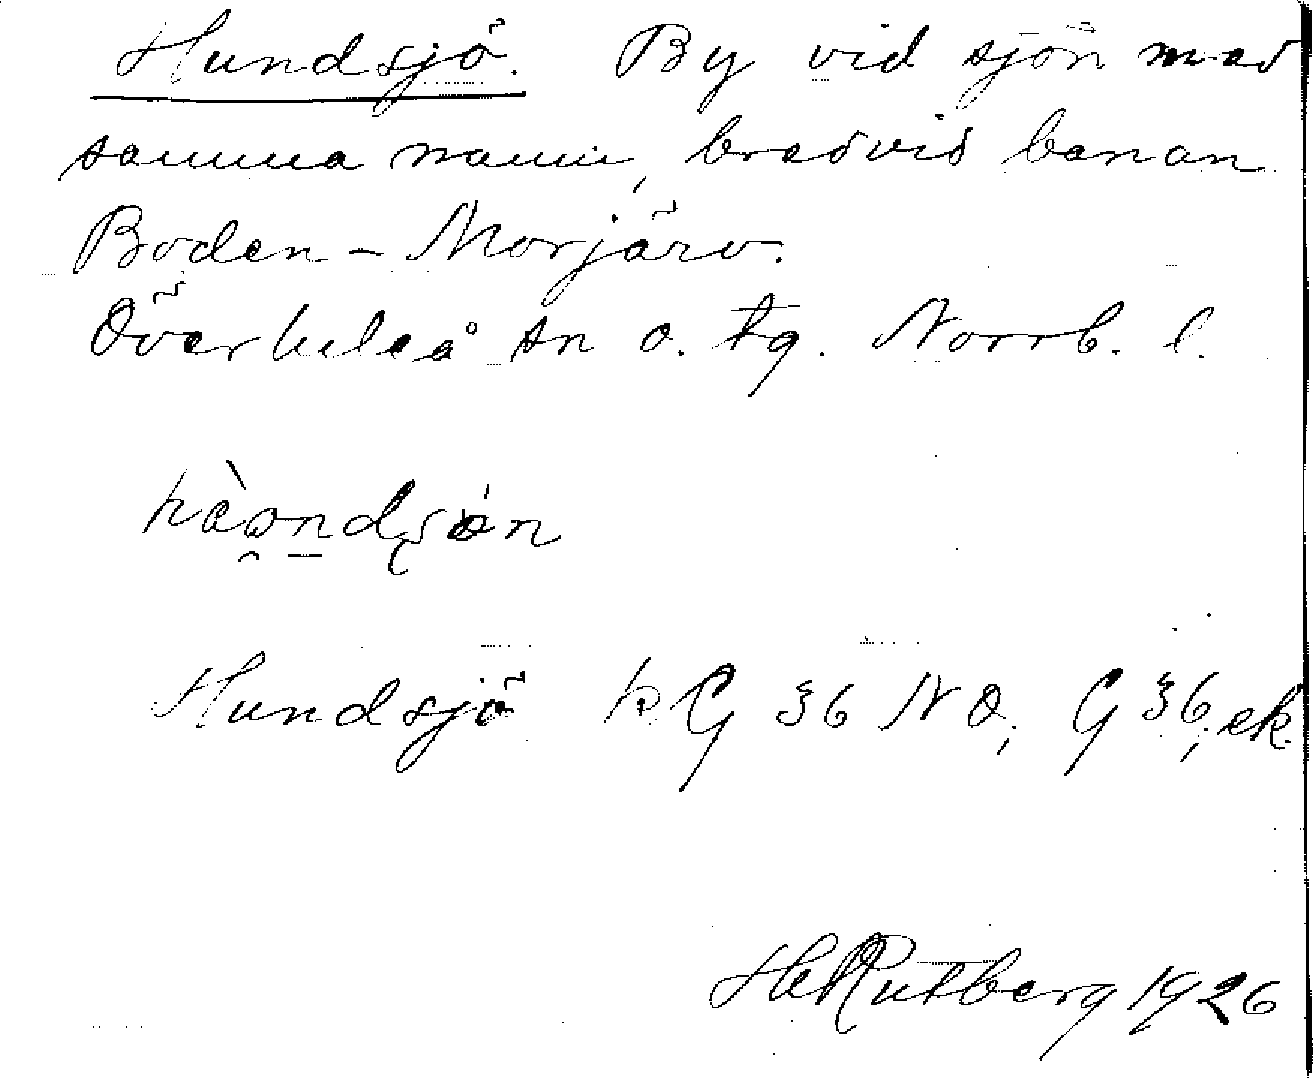 Hundsjö. By vid sjön med
samma namn, bredvid banan
Boden - Morjärv.
Överluleå sn o. tg. Norrb. l.
Hundsjö kG 36 NO, G 36, ek.
H Rutberg 1926